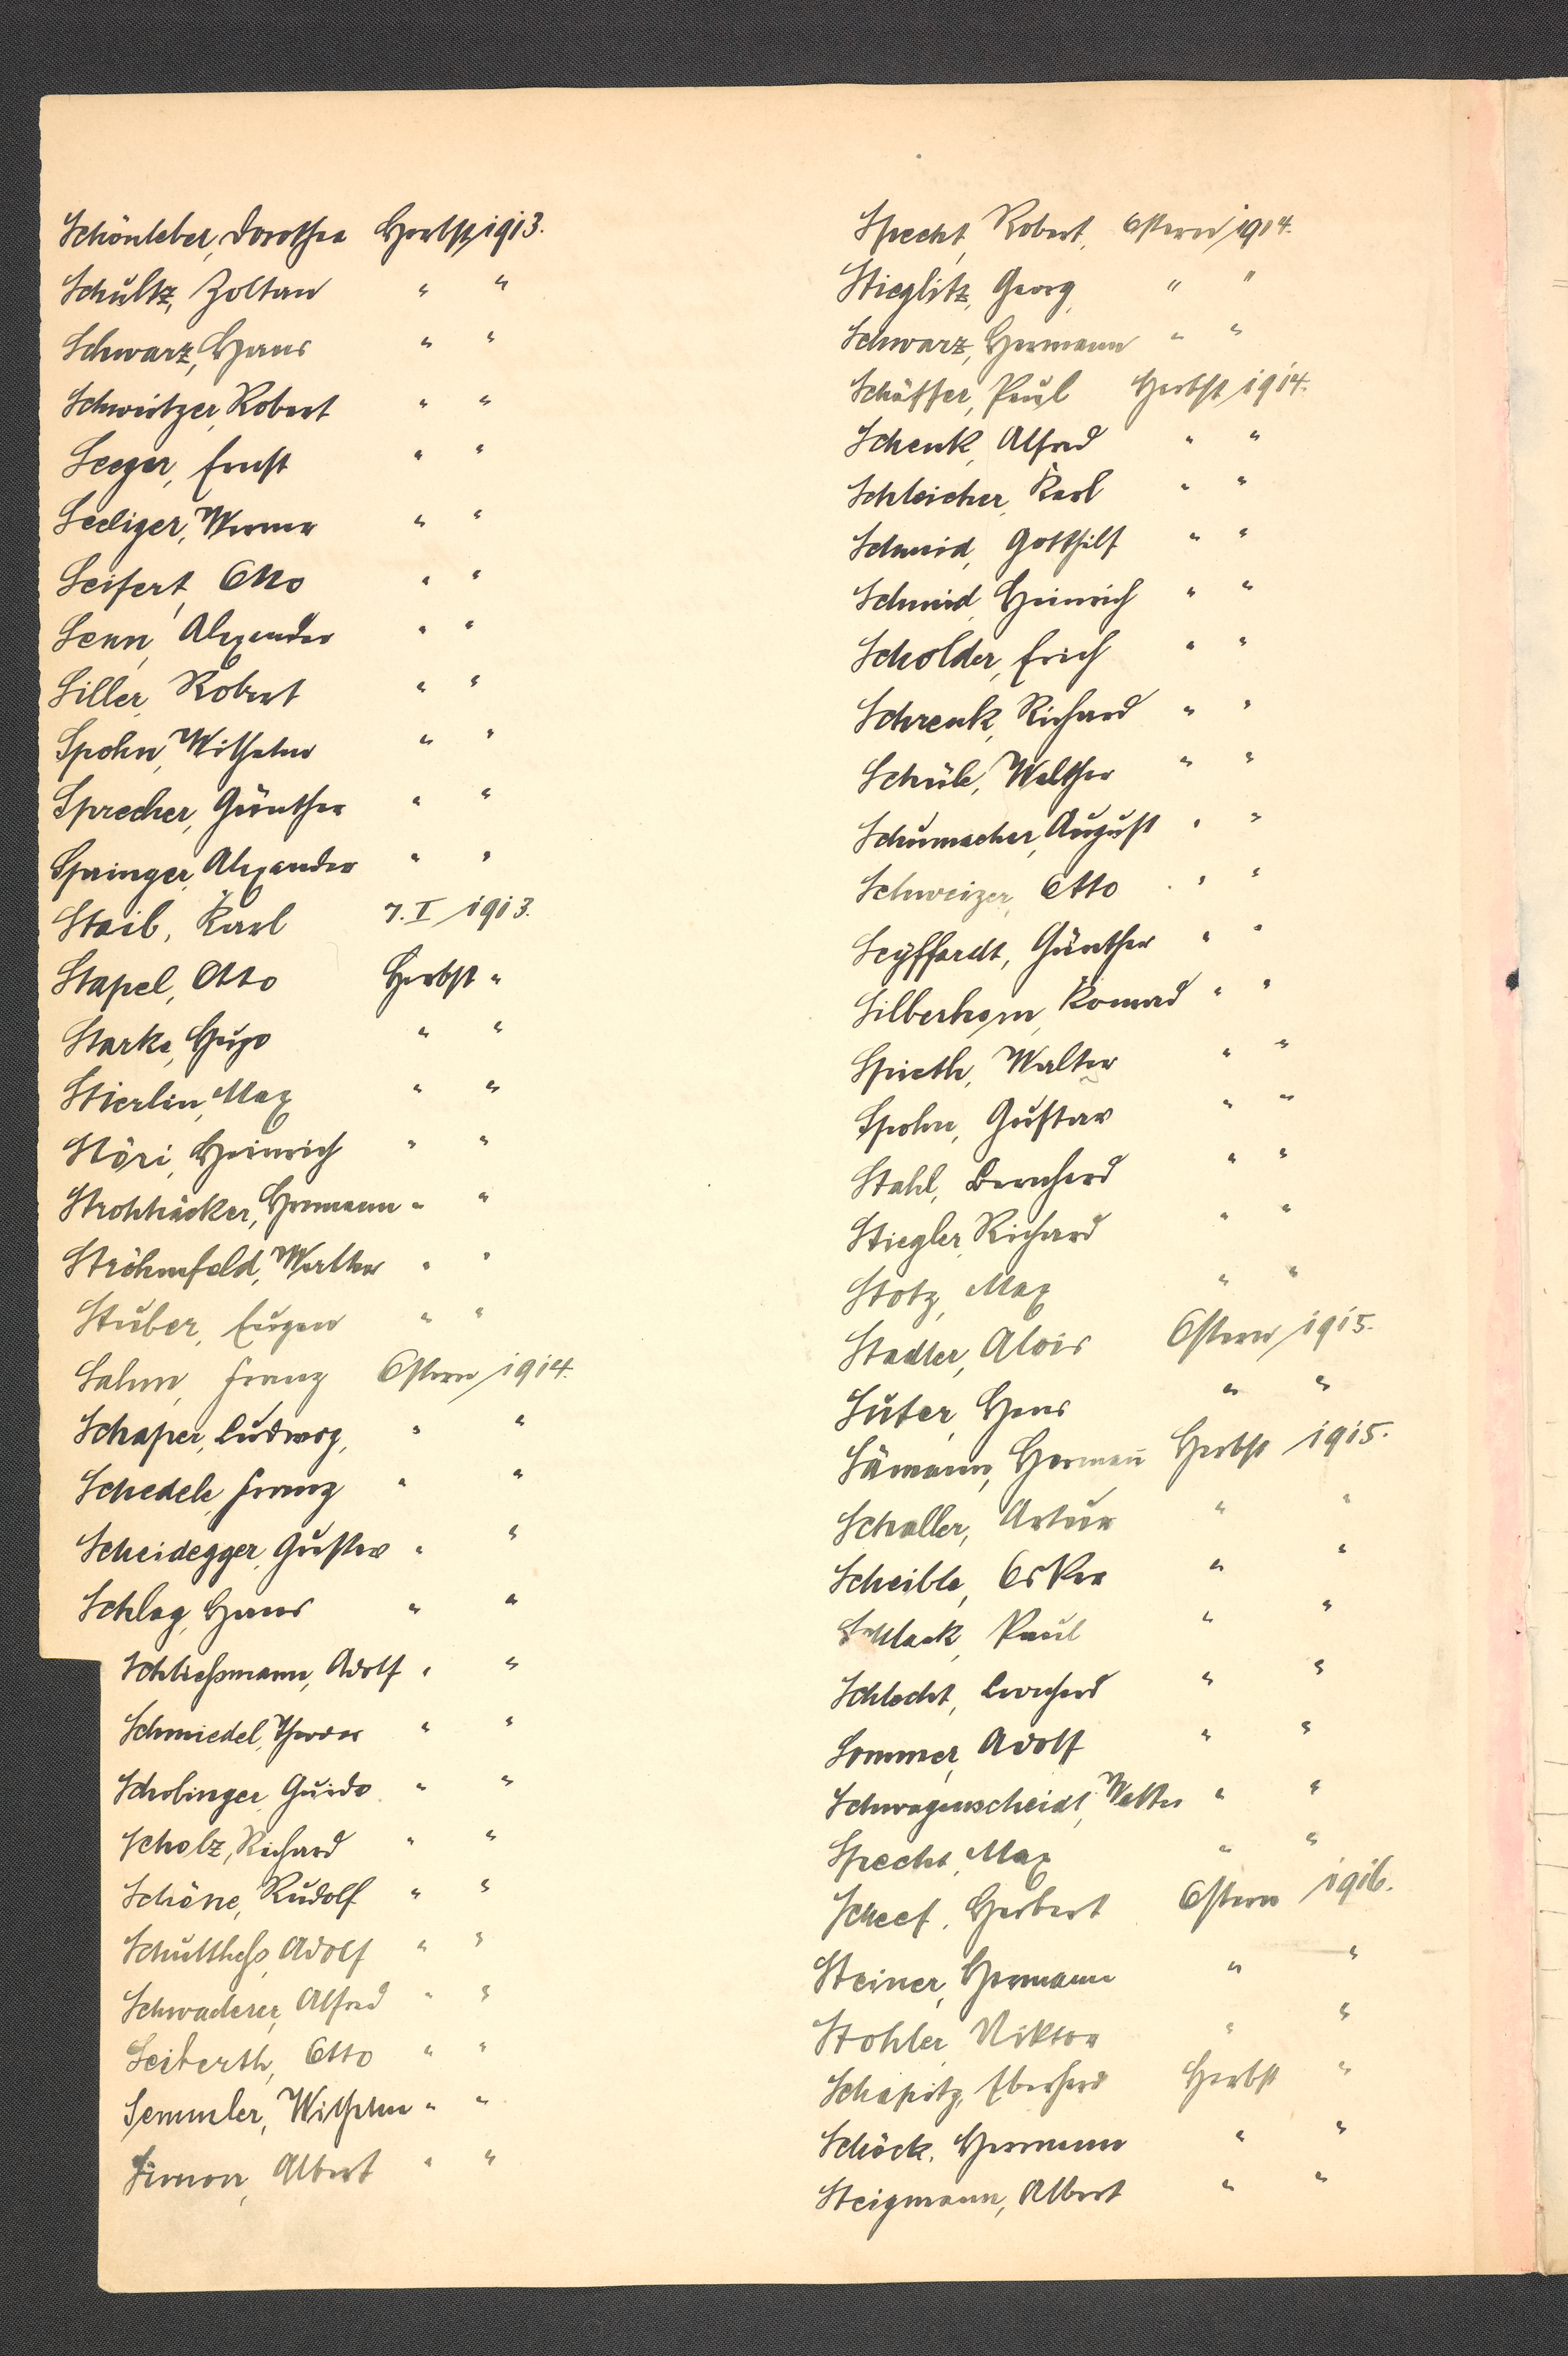 Schönleber, Dorothea Herbst 1913.
Schultz, Zoltan " "
Schwarz, Hans " "
Schweitzer, Robert " "
Seeger, Ernst " "
Seeliger, Werner " "
Seifert, Otto " "
Senn, Alexander " "
Siller, Robert " "
Spohn, Wilhelm " "
Sprecher, Günther " "
Springer, Alexander " "
Staib, Karl 7. I 1913.
Stapel, Otto Herbst "
Starke, Hugo " "
Stierlin, Max " "
Störi, Heinrich " "
Strohhäcker, Hermann " "
Ströhmfeld, Walther " "
Stuber, Eugen " "
Salm, Franz Ostern 1914.
Schaper, Ludwig, " "
Schedele, Franz " "
Scheidegger, Gustav " "
Schlag, Hans " "
Schließmann, Adolf " "
Schmiedel, Theodor " "
Scholinger, Guido " "
Scholz, Richard " "
Schöne, Rudolf " "
Schultheß, Adolf " "
Schwaderer, Alfred " "
Seiberth, Otto " "
Semmler, Wilhelm " "
Simon, Albert " "
Specht, Robert, Ostern 1914.
Stieglitz, Georg, " "
Schwarz, Hermann " "
Schäffer, Paul Herbst 1914.
Schenk, Alfred " "
Schleicher, Karl " "
Schmid, Gotthilf " "
Schmid, Heinrich " "
Scholder, Erich " "
Schrenk, Richard " "
Schüle, Walther " "
Schumacher, August " "
Schweizer, Otto " "
Seyffardt, Günther " "
Silberhorn, Konrad " "
Spieth, Walter " "
Spohn, Gustav " "
Stahl, Bernhard " "
Stiegler, Richard " "
Stotz, Max " "
Stadler, Alois Ostern 1915.
Suter, Hans " "
Sämann, Herman̄ Herbst 1915.
Schaller, Artur " "
Scheible, Oskar " "
Schlack, Paul " "
Schlecht, Bernhard " "
Sommer, Adolf " "
Schwagenscheidt, Walter " "
Specht, Max " "
Scheef, Herbert Ostern 1916.
Steiner, Hermann " "
Stohler, Viktor " "
Schapitz, Eberhard Herbst "
Schöck, Hermann " "
Steigmann, Albert " "